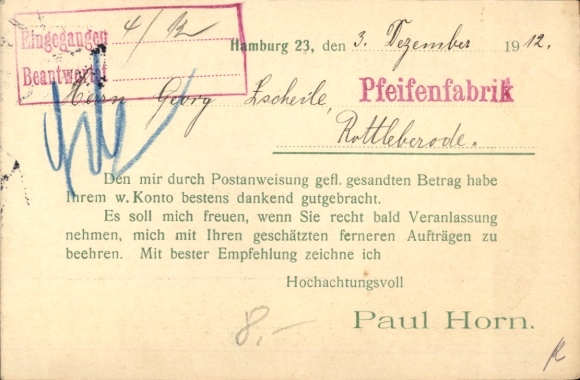 Eingegangen 4/12
Beantwortet
Hamburg 23, den 3. Dezember 1912.
Herrn Georg Zscheile, Pfeifenfabrik
Rottleberode.
Den mir durch Postanweisung gefl. gesandten Betrag habe
Ihrem w. Konto bestens dankend gutgebracht.
Es soll mich freuen, wenn Sie recht bald Veranlassung
nehmen, mich mit Ihren geschätzten ferneren Aufträgen zu
beehren. Mit bester Empfehlung zeichne ich
Hochachtungsvoll
Paul Horn.
8.-